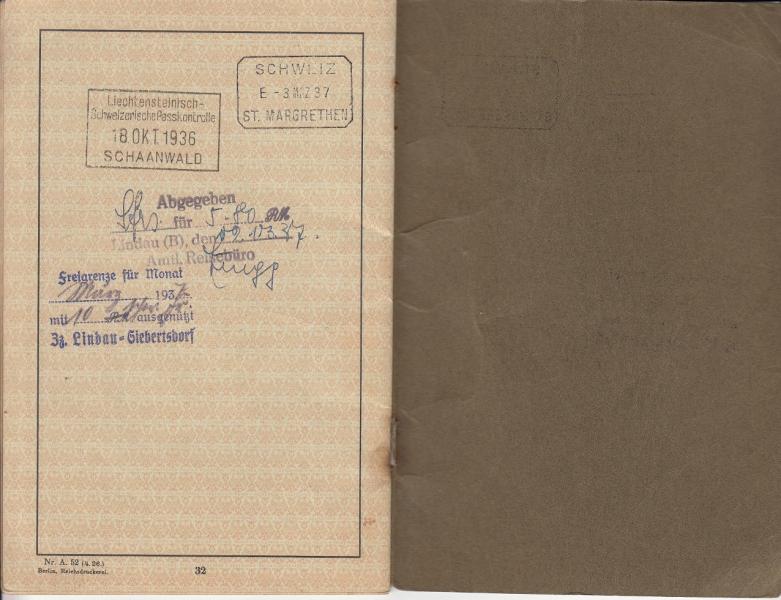 SCHWEIZ
E -3.III.Z 37
ST. MARGRETHEN
Liechtensteinisch-
Schweizerische Passkontrolle
18.OKT.1936
SCHAANWALD
Abgegeben
Sfrs. für 5.80 RM
Lindau (B), den 02.03.37.
Amtl. Reisebüro
Freigrenze für Monat
März 1937
mit 10 ausgenützt
Zz. Lindau-Giebertsdorf
Nr. A. 52 (4. 26.)
Berlin, Reichsdruckerei.
32